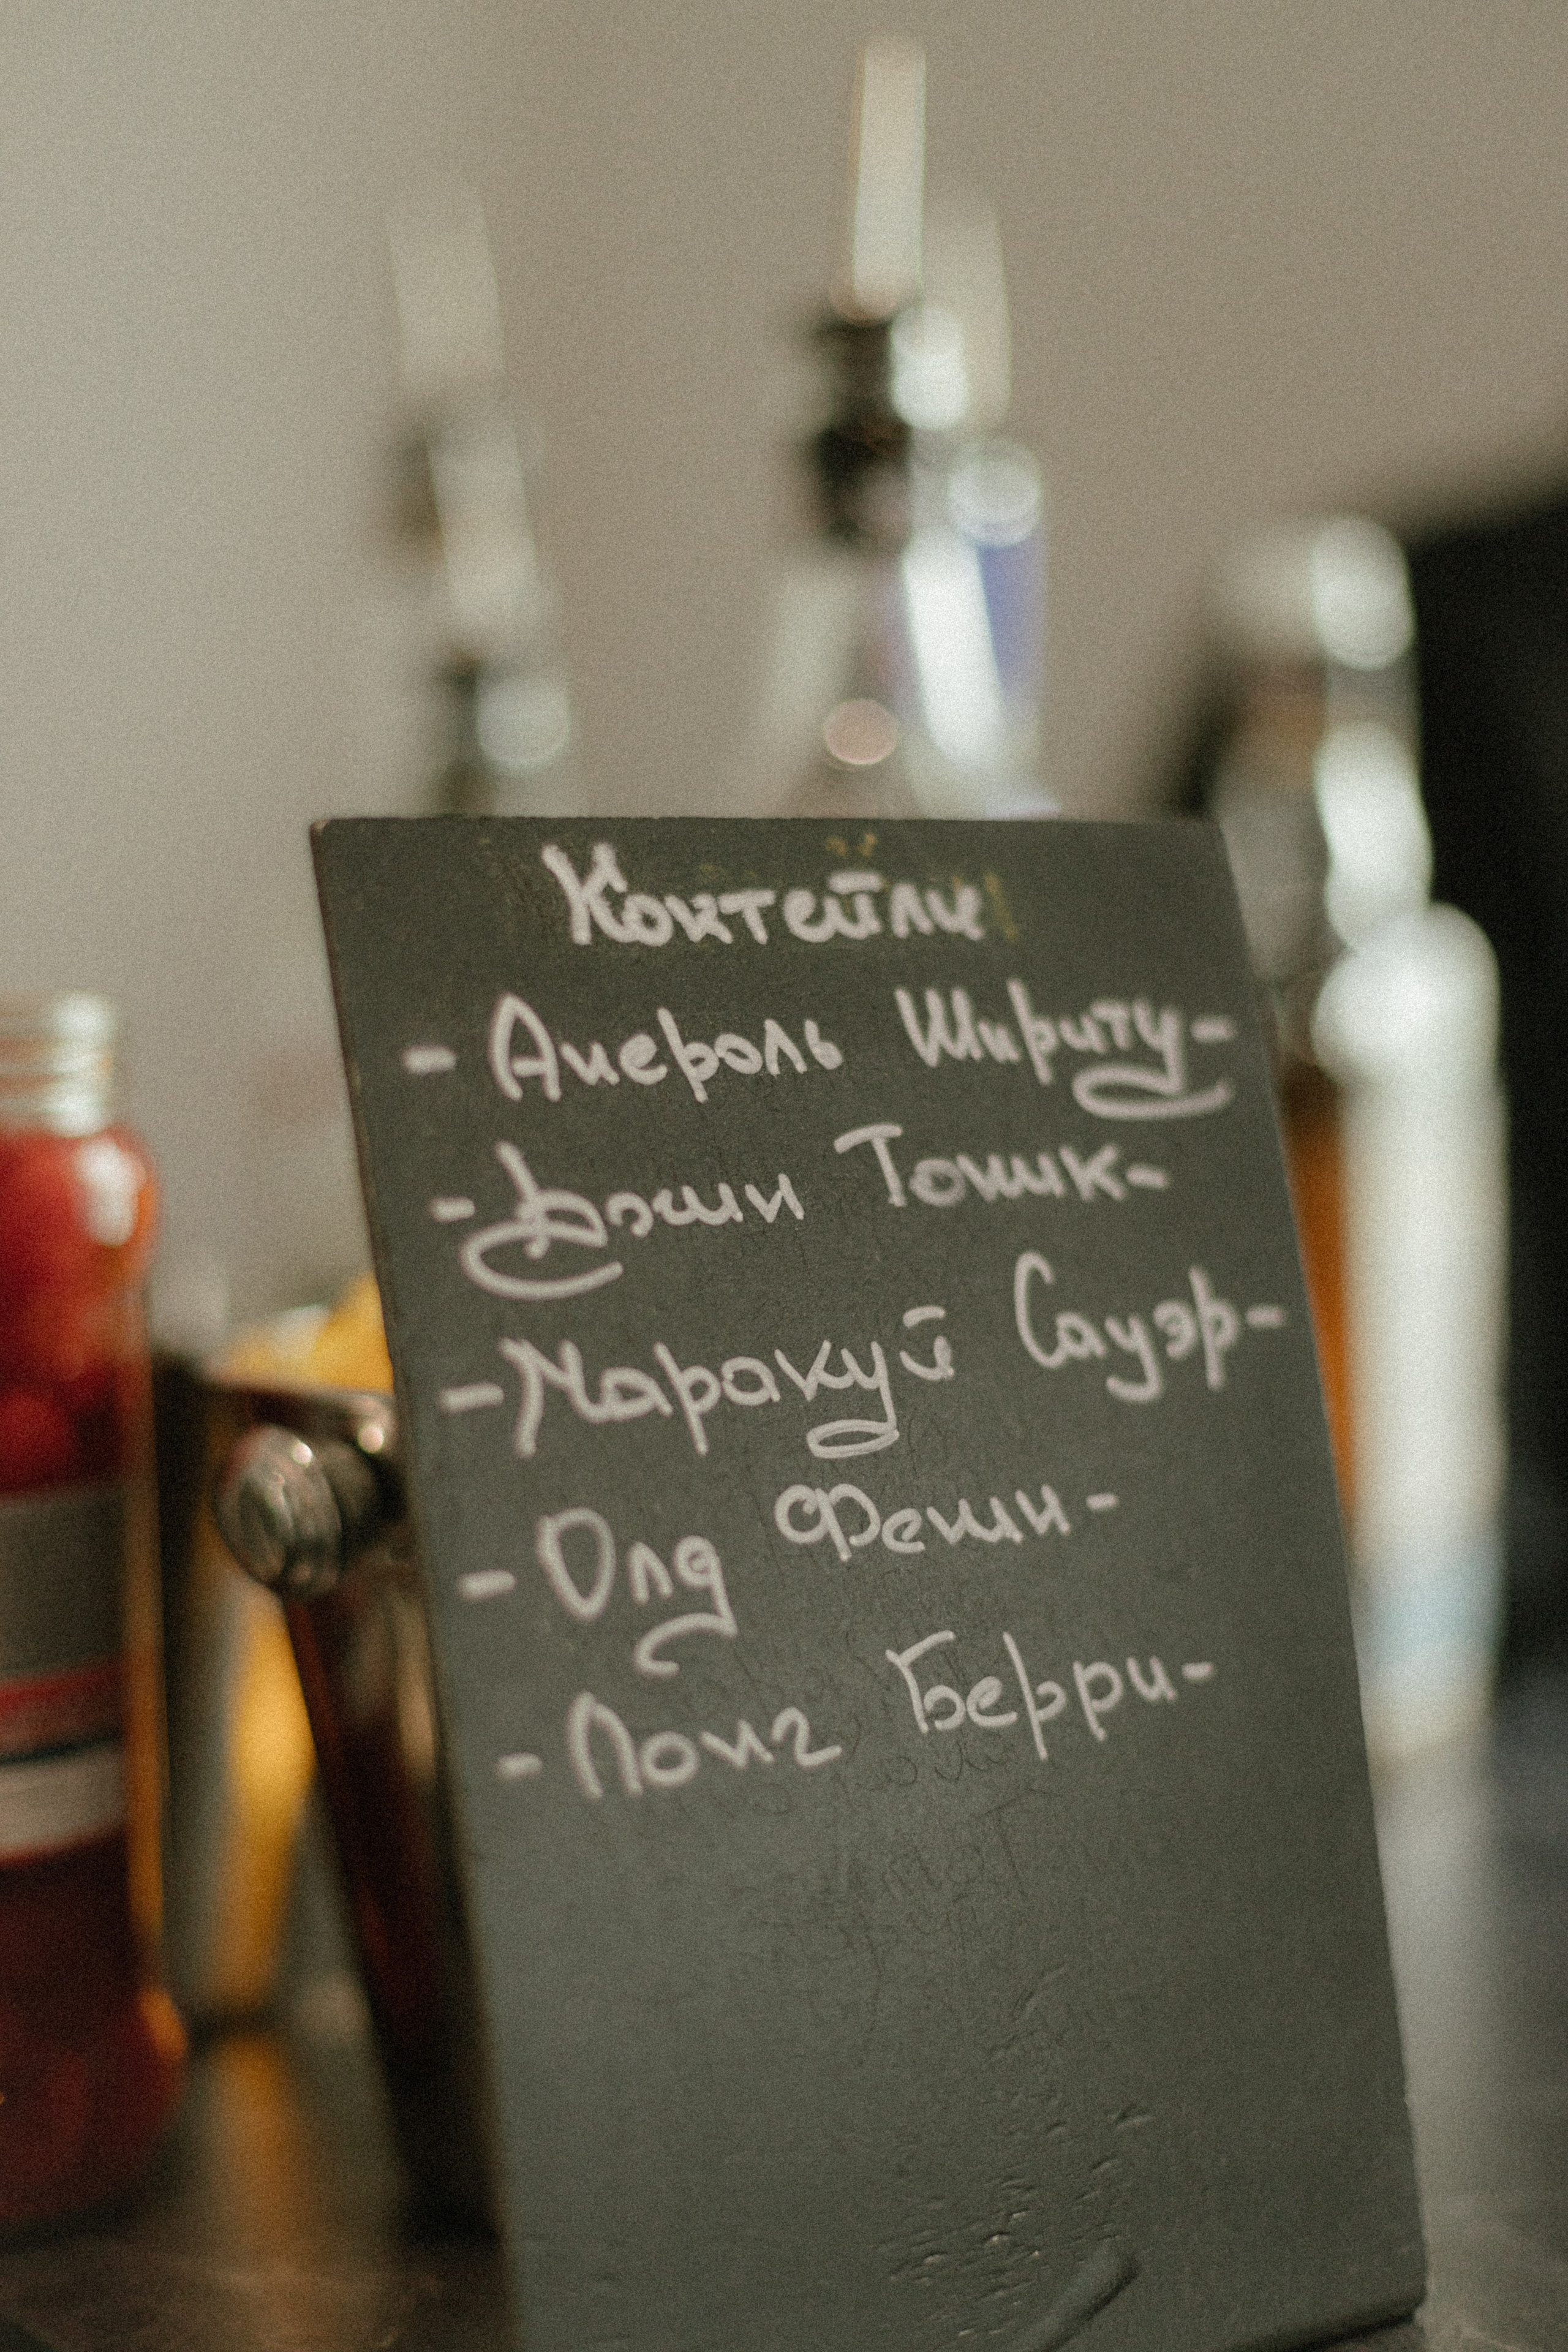 Коктейли
- Апероль Шприту -
- Джин Тоник -
- Маракуй Сауэр -
- Олд Фешн -
- Лонг Берри -